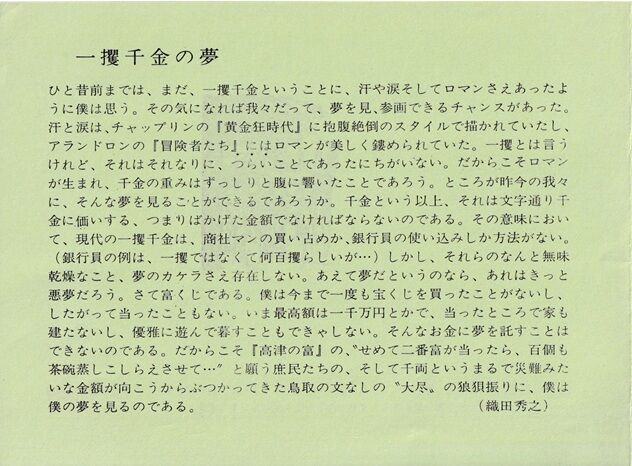 一攫千金の夢
ひと昔前までは、まだ、一攫千金ということに、汗や涙そしてロマンさえあったよ
うに僕は思う。その気になれば我々だって、夢を見、参画できるチャンスがあった。
汗と涙は、チャップリンの『黄金狂時代』に抱腹絶倒のスタイルで描かれていたし、
アランドロンの『冒険者たち』にはロマンが美しく鏤められていた。一攫とは言う
けれど、それはそれなりに、つらいことであったにちがいない。だからこそロマン
が生まれ、千金の重みはずっしりと腹に響いたことであろう。ところが昨今の我々
に、そんな夢を見ることができるであろうか。千金という以上、それは文字通り千
金に価いする、つまりばかげた金額でなければならないのである。その意味におい
て、現代の一攫千金は、商社マンの買い占めか、銀行員の使い込みしか方法がない。
（銀行員の例は、一攫ではなくて何百攫らしいが…）しかし、それらのなんと無味
乾燥なこと、夢のカケラさえ存在しない。あえて夢だというのなら、あれはきっと
悪夢だろう。さて富くじである。僕は今まで一度も宝くじを買ったことがないし、
したがって当ったこともない。いま最高額は一千万円とかで、当ったところで家も
建たないし、優雅に遊んで暮すこともできゃしない。そんなお金に夢を託すことは
できないのである。だからこそ『高津の富』の、〝せめて二番富が当ったら、百個も
茶碗蒸しこしらえさせて…〟と願う庶民たちの、そして千両というまるで災難みた
いな金額が向こうからぶつかってきた鳥取の文なしの〝大尽〟の狼狽振りに、僕は
僕の夢を見るのである。（織田秀之）